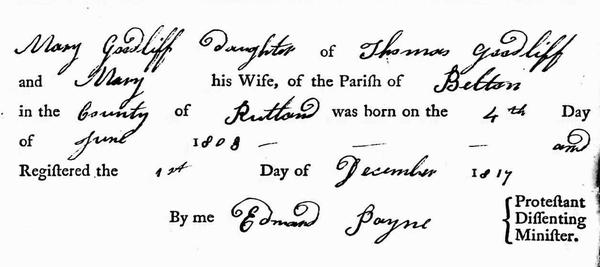 Mary Goodliff Daughter of Thomas Goodliff
and Mary his Wife, of the Pariſh of Belton
in the County of Rutland was born on the 4th Day
of June 1808 — — — and
Regiſtered the 1st Day of December 1817
By me Edmund Payne { Proteſtant
Diſſenting
Miniſter.